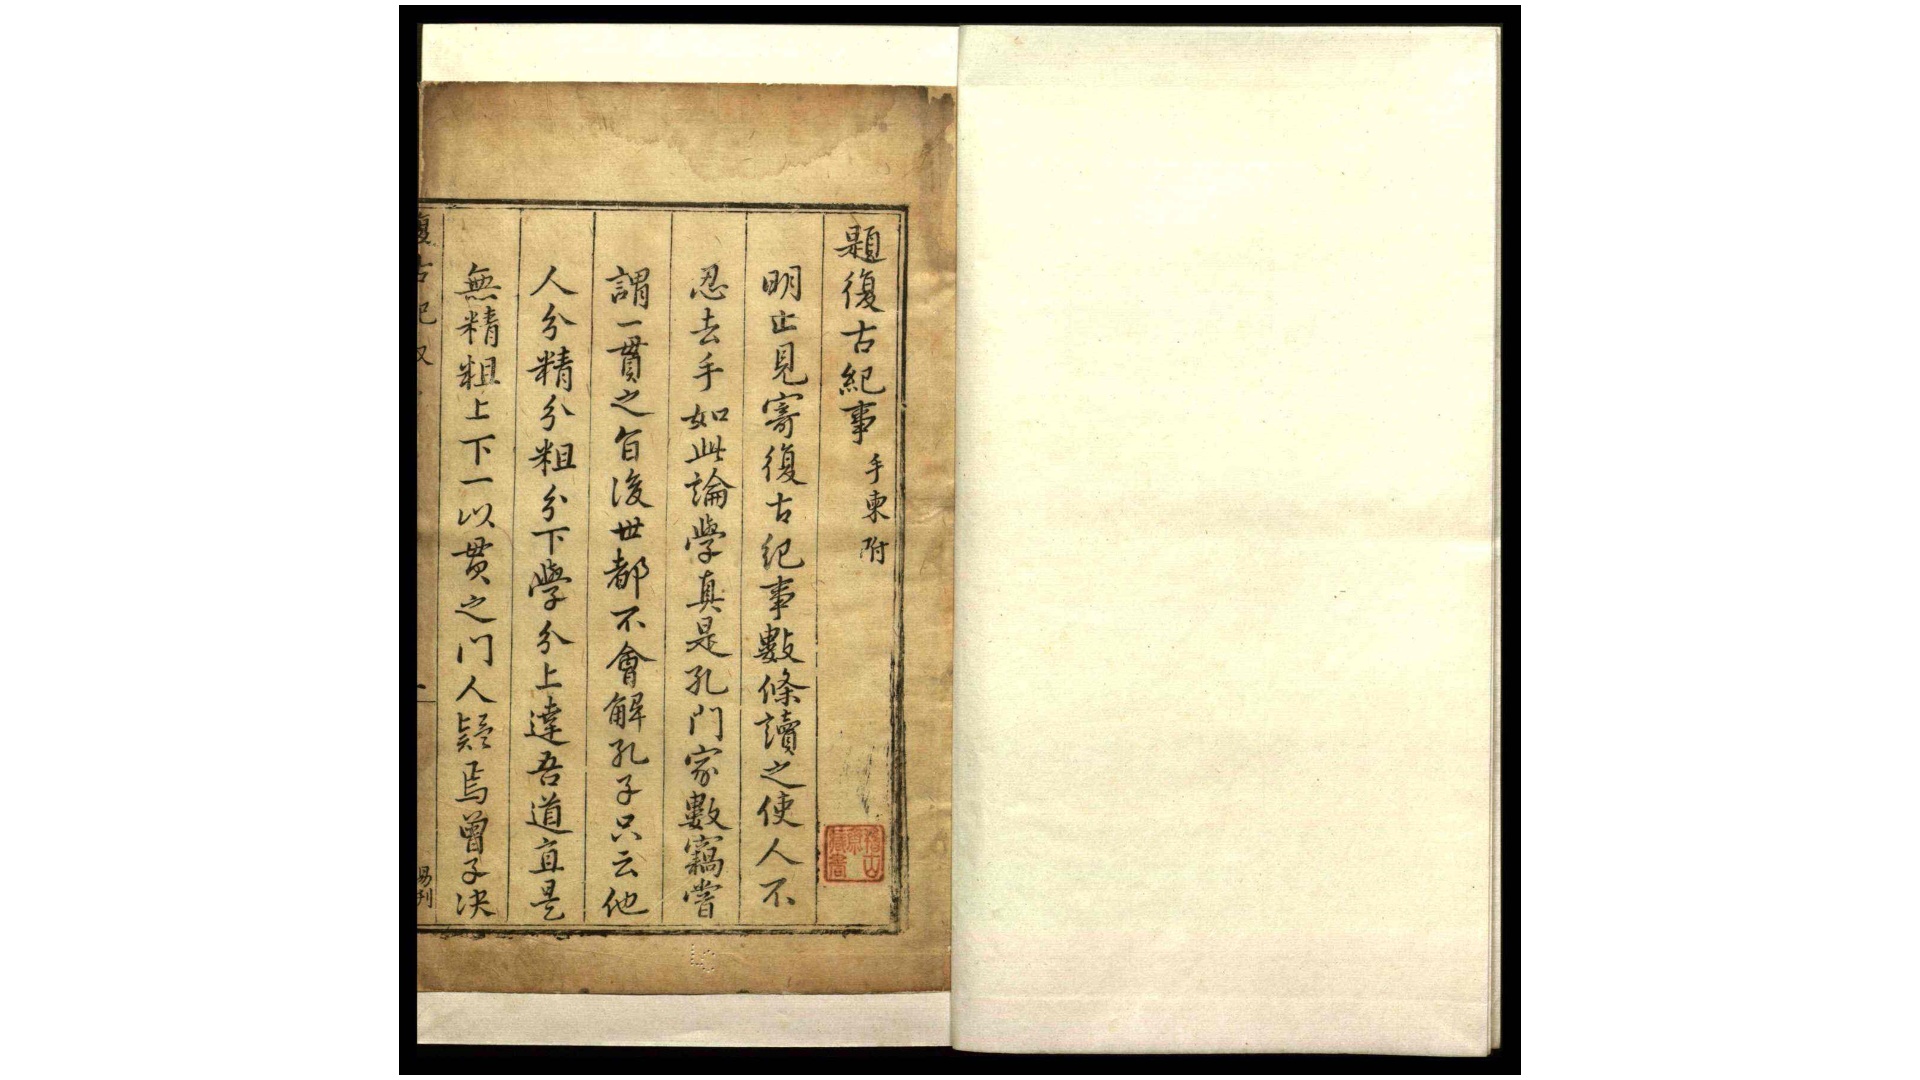 題復古紀事 手柬附
明止見寄復古紀事數條讀之使人不
忍去手如此論學真是孔門家數竊嘗
謂一貫之旨後世都不會解孔子只云他
人分精分粗分下學分上達吾道直是
無精粗上下一以貫之門人疑焉曾子決
復古紀
易刊